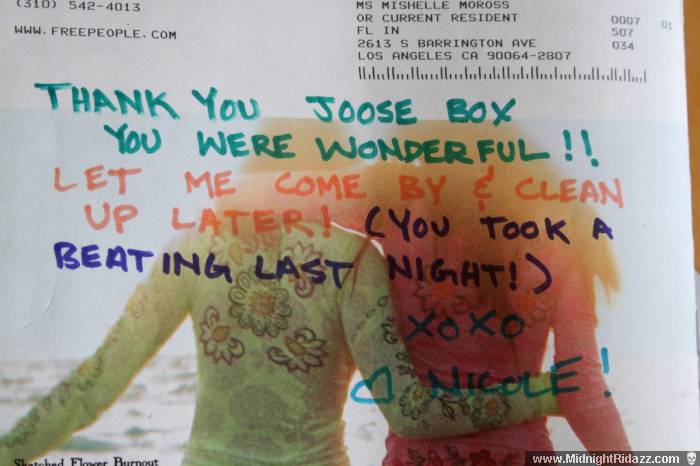 (310) 542-4013
WWW.FREEPEOPLE.COM
MS MISHELLE MOROSS
OR CURRENT RESIDENT
FL IN
2613 S BARRINGTON AVE
LOS ANGELES CA 90064-2807
0007 01
507
034
THANK YOU JOOSE BOX
YOU WERE WONDERFUL!!
LET ME COME BY & CLEAN
UP LATER! (YOU TOOK A
BEATING LAST NIGHT!)
XOXO
NICOLE!
Sketched Flower Burnout
www.MidnightRidazz.com